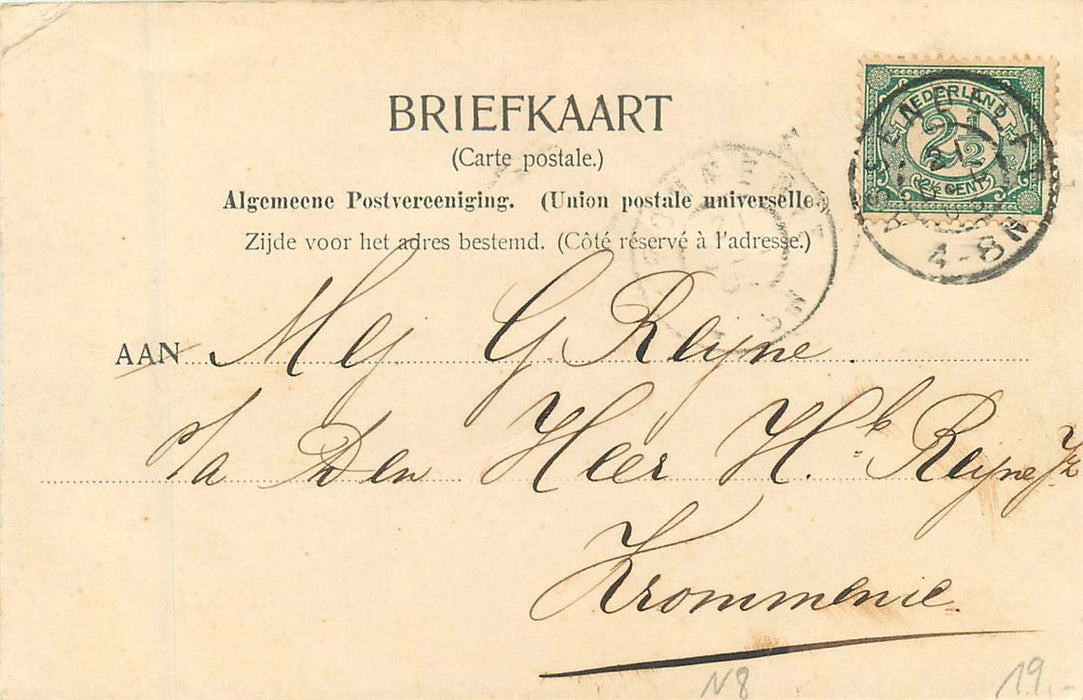 BRIEFKAART
(Carte postale.)
Algemeene Postvereeniging. (Union postale universelle)
Zijde voor het adres bestemd. (Côté réservé à l'adresse.)
NEDERLAND
2½
2½ CENT
4-8N
AAN Mej G Reijne.
p/a Den Heer Hk. Reijne Jz
Krommenie.
N8
19.-